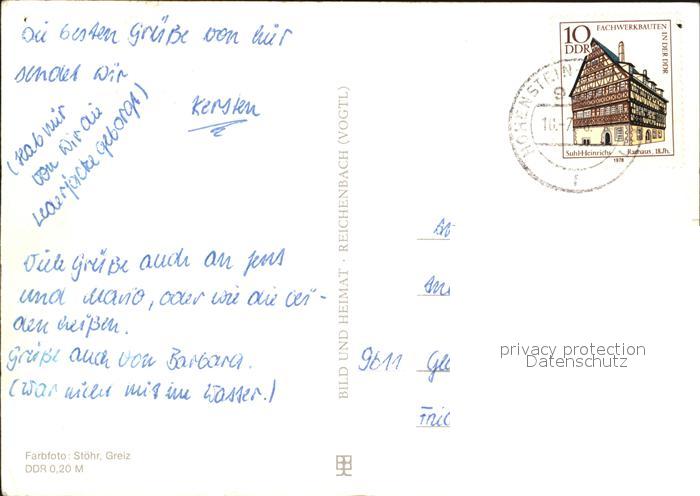 Die besten Grüße von hier
sendet wir
Kersten
(Hab mir
von wir die
geborgt)
Viele Grüße auch an Jens
und Mario, oder wie die bei-
den heißen.
Grüße auch von Barbara.
(War nicht mit im Wasser.)
Farbfoto: Stöhr, Greiz
DDR 0,20 M
BILD UND HEIMAT · REICHENBACH (VOGTL)
10
DDR
FACHWERKBAUTEN
IN DER DDR
Suhl-Heinrichs Rathaus, 18.Jh.
1978
HOHENSTEIN
9611
privacy protection
Datenschutz